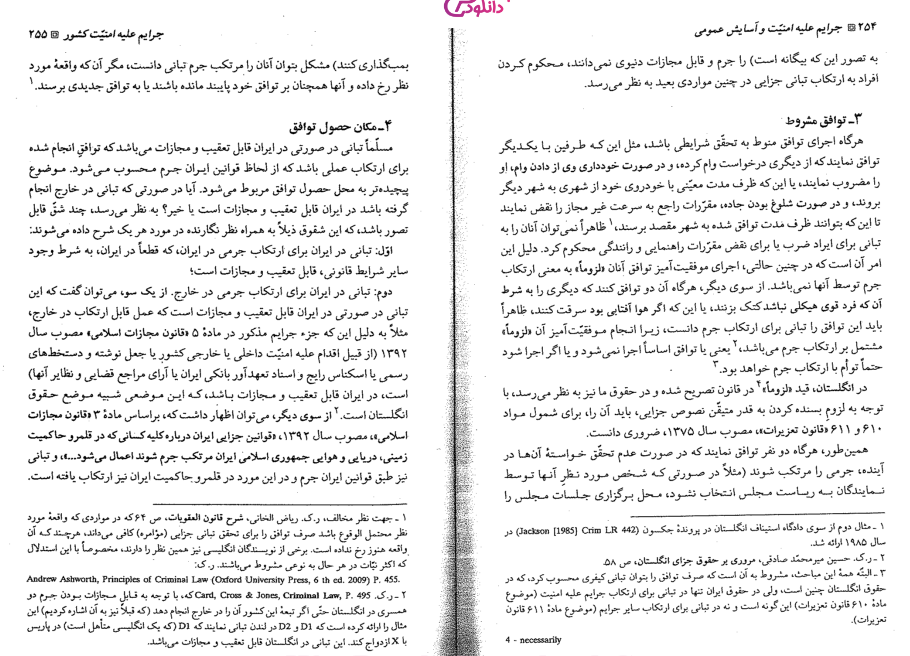 دانلود
۲۵۴ جرایم علیه امنیّت و آسایش عمومی
به تصور این که بیگانه است) را جرم و قابل مجازات دنیوی نمی‌دانند، محکوم کردن
افراد به ارتکاب تبانی جزایی در چنین مواردی بعید به نظر می‌رسد.
۳ـ توافق مشروط
هرگاه اجرای توافق منوط به تحقّق شرایطی باشد، مثل این کـه طـرفین با یکـدیگر
توافق نمایند که از دیگری درخواست وام کرده، و در صورت خودداری وی از دادن وام، او
را مضروب نمایند، یا این که ظرف مدت معیّنی با خودروی خود از شهری به شهر دیگر
بروند، و در صورت شلوغ بودن جاده، مقرّرات راجع به سرعت غیر مجاز را نقض نمایند
تا این که بتوانند ظرف مدت توافق شده به شهر مقصد برسند،۱ ظاهراً نمی‌توان آنان را به
تبانی برای ایراد ضرب یا برای نقض مقرّرات راهنمایی و رانندگی محکوم کرد. دلیل این
امر آن است که در چنین حالتی، اجرای موفقیت‌آمیز توافق آنان «لزوماً» به معنی ارتکاب
جرم توسط آنها نمی‌باشد. از سوی دیگر، هرگاه آن دو توافق کنند که دیگری را به شرط
آن که فرد قوی هیکلی نباشد کتک بزنند، یا این که اگر هوا آفتابی بود سرقت کنند، ظاهراً
باید این توافق را تبانی برای ارتکاب جرم دانست، زیـرا انجـام مـوفقیّت‌آمیز آن «لزوماً»
مشتمل بر ارتکاب جرم می‌باشد،۲ یعنی یا توافق اساساً اجرا نمی‌شود و یا اگر اجرا شود
حتماً توأم با ارتکاب جرم خواهد بود.۳
در انگلستان، قید «لزوماً»۴ در قانون تصریح شده و در حقوق ما نیز به نظر می‌رسد، با
توجه به لزوم بسنده کردن به قدر متیقّن نصوص جزایی، باید آن را، برای شمول مـواد
۶۱۰ و ۶۱۱ «قانون تعزیرات»، مصوب سال ۱۳۷۵، ضروری دانست.
همین‌طور، هرگاه دو نفر توافق نمایند که در صورت عدم تحقّق خواستهٔ آن‌هـا در
آینده، جرمی را مرتکب شوند (مثلاً در صورتی کـه شـخص مـورد نظـرِ آنهـا توسط
نـمایندگان بـه ریـاست مـجلس انتخاب نشـود، محـل برگزاری جلسات مجلس را
۱ ـ مثال دوم از سوی دادگاه استیناف انگلستان در پروندهٔ جکسون (Jackson [1985] Crim LR 442) در
سال ۱۹۸۵ ارائه شد.
۲ ـ ر.ک. حسین میرمحمّد صادقی، مروری بر حقوق جزای انگلستان، ص ۵۸.
۳ ـ البتّه همهٔ این مباحث، مشروط به آن است که صرف توافق را بتوان تبانی کیفری محسوب کرد، که در
حقوق انگلستان چنین است، ولی در حقوق ایران تنها در تبانی برای ارتکاب جرایم علیه امنیت (موضوع
مادهٔ ۶۱۰ قانون تعزیرات) این گونه است و نه در تبانی برای ارتکاب سایر جرایم (موضوع مادهٔ ۶۱۱ قانون
تعزیرات).
4 - necessarily
جرایم علیه امنیّت کشور ۲۵۵
بمب‌گذاری کنند) مشکل بتوان آنان را مرتکب جرم تبانی دانست، مگر آن که واقعهٔ مورد
نظر رخ داده و آنها همچنان بر توافق خود پایبند مانده باشند یا به توافق جدیدی برسند.۱
۴ـ مکان حصول توافق
مسلّماً تبانی در صورتی در ایران قابل تعقیب و مجازات می‌باشد که توافقِ انجام شده
برای ارتکاب عملی باشد که از لحاظ قوانین ایران جـرم محسـوب مـی‌شود. مـوضوع
پیچیده‌تر به محل حصول توافق مربوط می‌شود. آیا در صورتی که تبانی در خارج انجام
گرفته باشد در ایران قابل تعقیب و مجازات است یا خیر؟ به نظر می‌رسد، چند شقّ قابل
تصور باشد، که این شقوق ذیلاً به همراه نظر نگارنده در مورد هر یک شرح داده می‌شوند:
اوّل: تبانی در ایران برای ارتکاب جرمی در ایران، که قطعاً در ایران، به شرط وجود
سایر شرایط قانونی، قابل تعقیب و مجازات است؛
دوم: تبانی در ایران برای ارتکاب جرمی در خارج. از یک سو، می‌توان گفت که این
تبانی در صورتی در ایران قابل تعقیب و مجازات است که عمل قابل ارتکاب در خارج،
مثلاً به دلیل این که جزء جرایم مذکور در مادهٔ ۵ «قانون مجازات اسلامی» مصوب سال
۱۳۹۲ (از قبیل اقدام علیه امنیّت داخلی یا خارجی کشور یا جعل نوشته و دستخط‌های
رسمی یا اسکناس رایج و اسناد تعهدآور بانکی ایران یا آرای مراجع قضایی و نظایر آنها)
است، در ایران قابل تعقیب و مجازات بـاشد، کـه ایـن مـوضعی شـبیه مـوضع حقوق
انگلستان است.۲ از سوی دیگر، می‌توان اظهار داشت که، براساس مادهٔ ۳ «قانون مجازات
اسلامی»، مصوب سال ۱۳۹۲، «قوانین جزایی ایران درباره کلیه کسانی که در قلمرو حاکمیت
زمینی، دریایی و هوایی جمهوری اسلامی ایران مرتکب جرم شوند اعمال می‌شود...»، و تبانی
نیز طبق قوانین ایران جرم و در این مورد در قلمرو حاکمیت ایران نیز ارتکاب یافته است.
۱ ـ جهت نظر مخالف، ر.ک. ریاض الخانی، شرح قانون العقوبات، ص ۶۴ که در مواردی که واقعهٔ مورد
نظر محتمل الوقوع باشد صرف توافق را برای تحقق تبانی جزایی (مؤامره) کافی می‌داند، هرچنـد کـه آن
واقعه هنوز رخ نداده است. برخی از نویسندگان انگلیسی نیز همین نظر را دارند، مخصوصاً با این استدلال
که اکثر نیّات در هر حال به نوعی مشروط می‌باشند. ر.ک:
Andrew Ashworth, Principles of Criminal Law (Oxford University Press, 6 th ed. 2009) P. 455.
۲ ـ ر.ک. Card, Cross & Jones, Criminal Law, P. 495 که، با توجه به قابـل مـجازات بـودن جرم دو
همسری در انگلستان حتّی اگر تبعهٔ این کشور آن را در خارج انجام دهد (که قبلاً نیز به آن اشاره کردیم) این
مثال را ارائه کرده است که D1 و D2 در لندن تبانی نمایند که D1 (که یک انگلیسی متأهل است) در پاریس
با X ازدواج کند. این تبانی در انگلستان قابل تعقیب و مجازات می‌باشد.